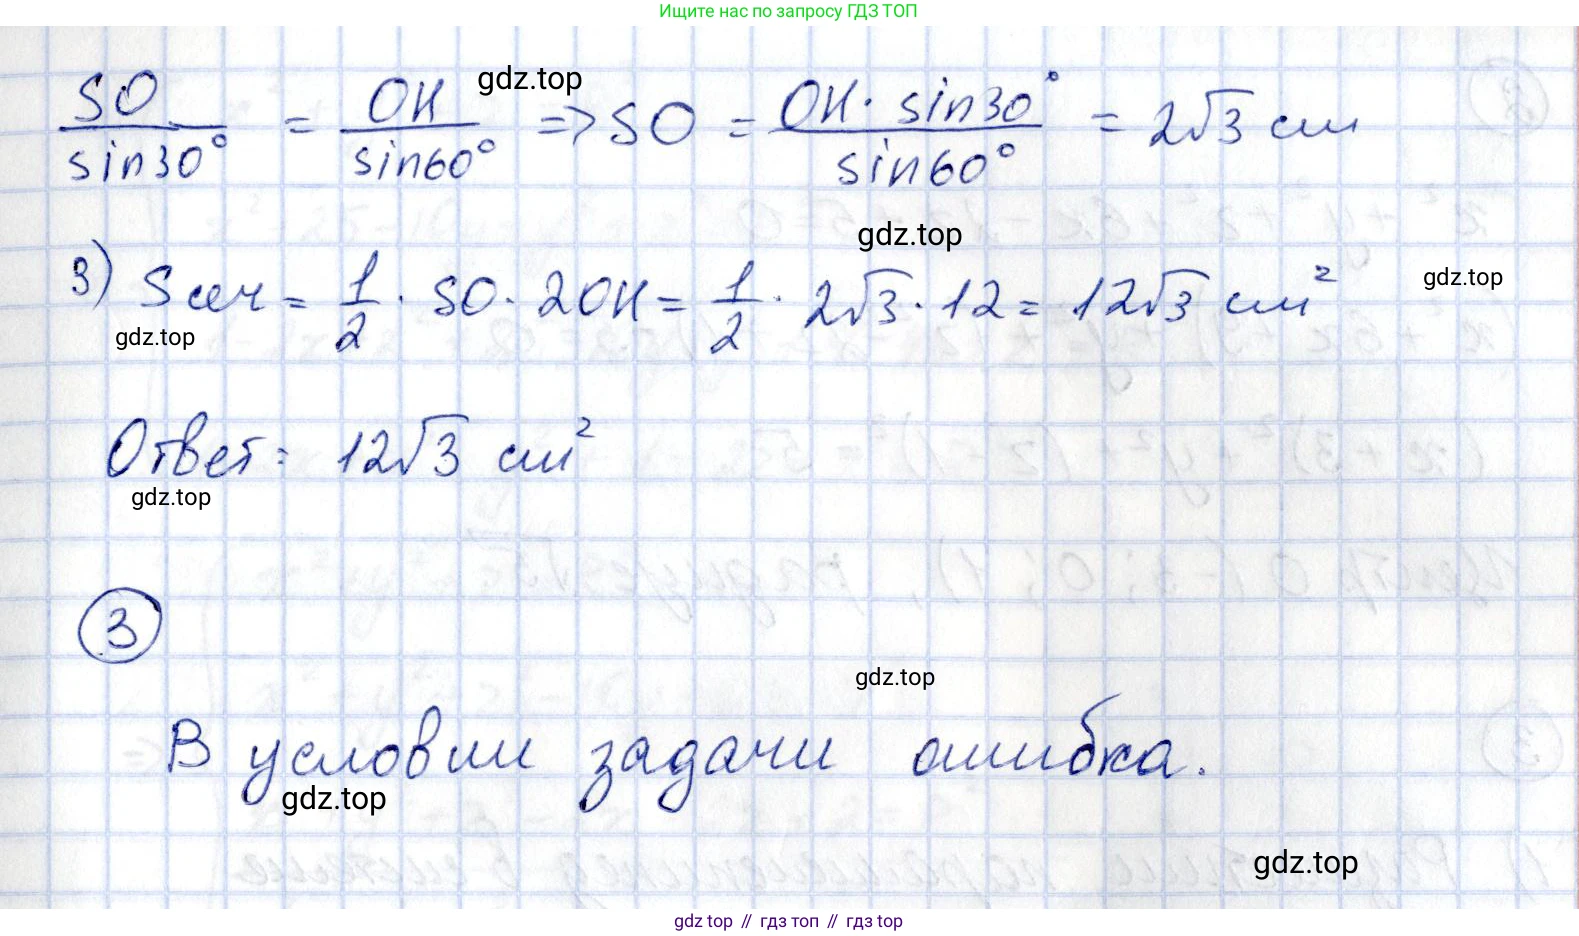 Ищите нас по запросу ГДЗ ТОП
SO/sin30° = OH/sin60° => SO = OH · sin30°/sin60° = 2√3 см
gdz.top
gdz.top
3) Sсеч = 1/2 · SO · 2OH = 1/2 · 2√3 · 12 = 12√3 см²
gdz.top
gdz.top
Ответ: 12√3 см²
gdz.top
3
gdz.top
В условии задачи ошибка.
gdz.top
gdz.top
gdz top // гдз топ // гдз top